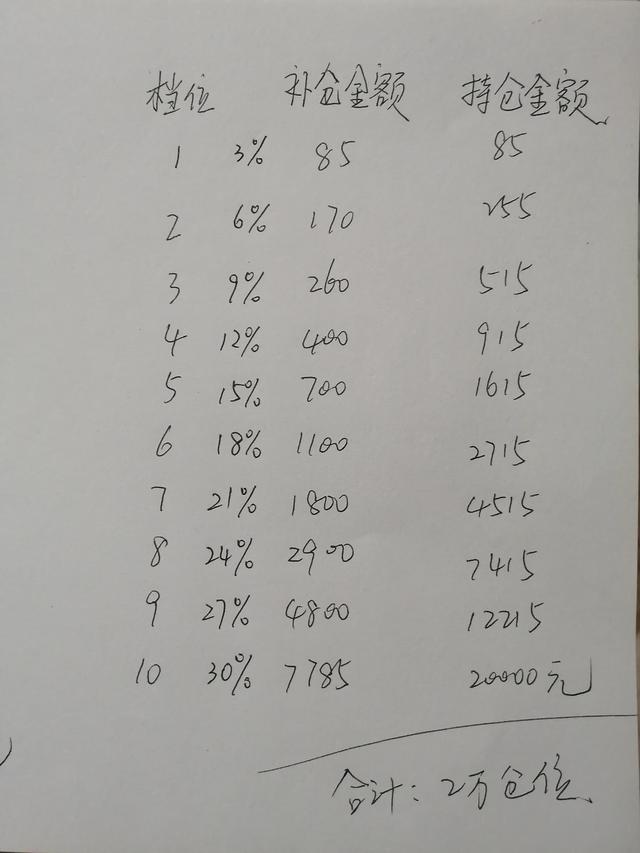 档位 补仓金额 持仓金额
1 3% 85 85
2 6% 170 255
3 9% 260 515
4 12% 400 915
5 15% 700 1615
6 18% 1100 2715
7 21% 1800 4515
8 24% 2900 7415
9 27% 4800 12215
10 30% 7785 20000元
合计：2万仓位